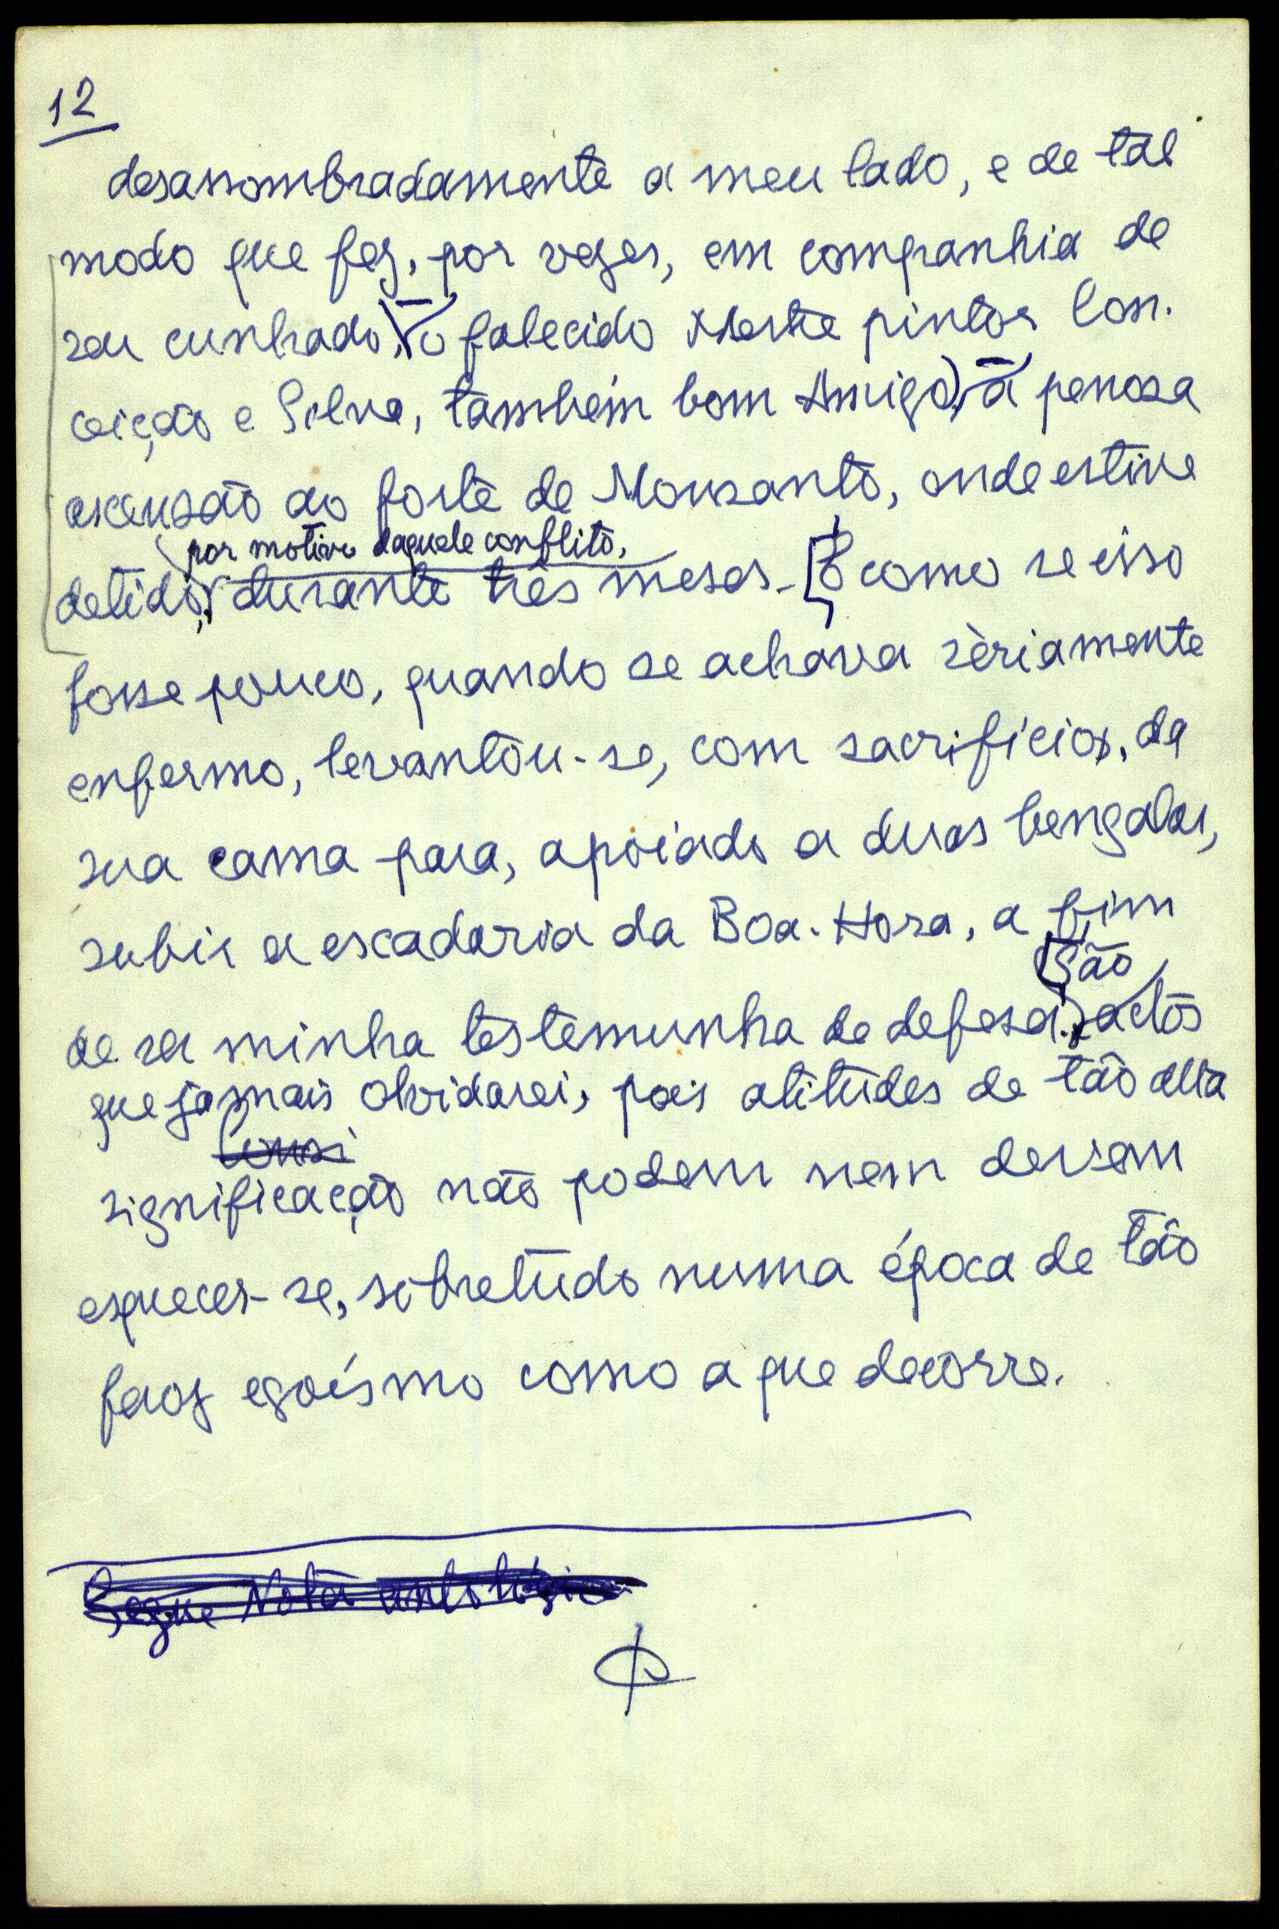 12
desassombradamente a meu lado, e de tal
modo que fez, por vezes, em companhia de
seu cunhado, – o falecido Mestre pintor Con-
ceição e Silva, também bom Amigo, – a penosa
ascensão ao forte de Monsanto, onde estive
por motivo daquele conflito,
detido, durante três meses. E como se isso
fosse pouco, quando se achava sèriamente
enfermo, levantou-se, com sacrifício, da
sua cama para, apoiado a duas bengalas,
subir a escadaria da Boa-Hora, a fim
São
de ser minha testemunha de defesa. actos
que jamais olvidarei, pois atitudes de tão alta
significação não podem nem devem
esquecer-se, sobretudo numa época de tão
feroz egoísmo como a que decorre.
Segue Nota antológica